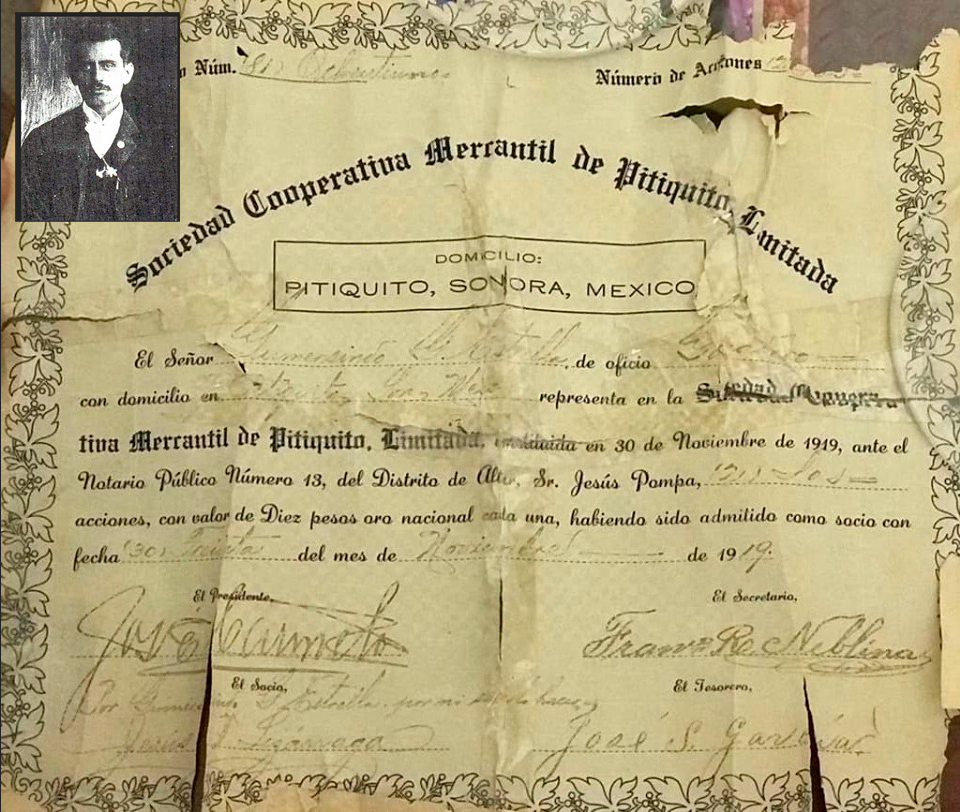 Núm. (81) Ochentiuno
Número de Acciones
Sociedad Cooperativa Mercantil de Pitiquito, Limitada
DOMICILIO:
PITIQUITO, SONORA, MEXICO
El Señor Gumersindo G. Estrella, de oficio
con domicilio en representa en la Sociedad Coopera-
tiva Mercantil de Pitiquito, Limitada, instituida en 30 de Noviembre de 1919, ante el
Notario Público Número 13, del Distrito de Altar, Sr. Jesús Pompa, Dos
acciones, con valor de Diez pesos oro nacional cada una, habiendo sido admitido como socio con
fecha (30) Treinta del mes de Noviembre de 1919.
El Presidente, El Secretario,
José Franco R. Neblina
El Socio, El Tesorero,
Por Gumersindo G. Estrella, por no
Jesús Lizárraga José S. García